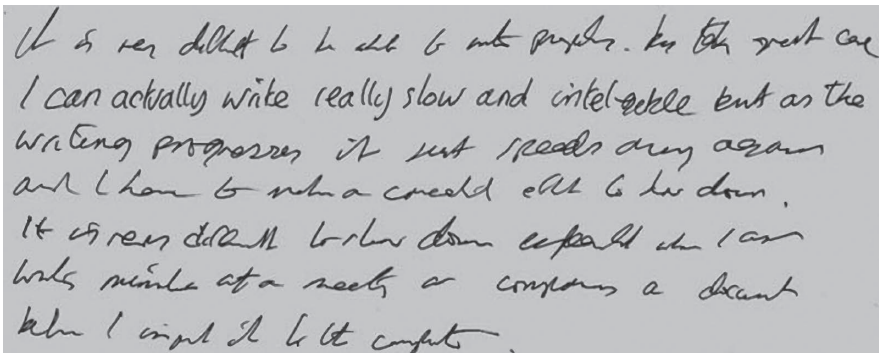 It is very difficult to be able to write properly. by taking great care
I can actually write really slow and intelligible but as the
writing progresses it just speeds away again
and I have to make a concerted effort to slow down.
It is very difficult to slow down especially when I am
writing minutes at a meeting or composing a document
before I input it to the computer.